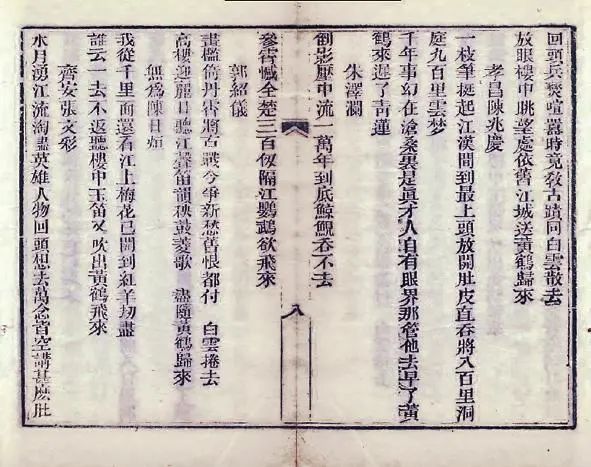 回頭兵燹喧囂時竟敎古蹟同白雲散去
放眼樓中眺望處依舊江城送黃鶴歸來
孝昌陳兆慶
一枝筆挺起江漢間到最上頭放開肚皮直吞將八百里洞
庭九百里雲夢
千年事幻在滄桑裏是眞才人自有眼界那管他去早了黃
鶴來遲了靑蓮
朱澤瀾
倒影壓中流一萬年到底鯨鯢吞不去
八
參霄憾全楚三百仭隔江鸚鵡欲飛來
郭紹儀
畫檻倚丹霄將古戰今爭新愁舊恨都付 白雲捲去
高樓迎麗日聽江聲笛韻秧鼓菱歌 盡隨黃鶴歸來
無爲陳日頌
我從千里而還看江上梅花已開到紅羊刧盡
誰云一去不返聽樓中玉笛又吹出黃鶴飛來
齊安張文彩
水月湧江流淘盡英雄人物回頭想去萬念皆空講甚麽肚